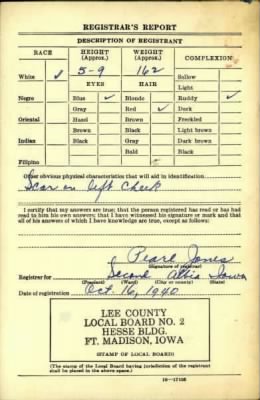 REGISTRAR'S REPORT
DESCRIPTION OF REGISTRANT
RACE HEIGHT (Approx.) WEIGHT (Approx.) COMPLEXION
White ✓ 5-9 162 Sallow
EYES HAIR Light
Negro Blue ✓ Blonde Ruddy ✓
Gray Red ✓ Dark
Oriental Hazel Brown Freckled
Brown Black Light brown
Indian Black Gray Dark brown
Bald Black
Filipino
Other obvious physical characteristics that will aid in identification
Scar on left Cheek
I certify that my answers are true; that the person registered has read or has had read to him his own answers; that I have witnessed his signature or mark and that all of his answers of which I have knowledge are true, except as follows:
Pearl Jones
(Signature of registrar)
Registrar for Second Albia Iowa
(Precinct) (Ward) (City or county) (State)
Date of registration Oct. 16, 1940
LEE COUNTY
LOCAL BOARD NO. 2
HESSE BLDG.
FT. MADISON, IOWA
(STAMP OF LOCAL BOARD)
(The stamp of the Local Board having jurisdiction of the registrant shall be placed in the above space.)
16-17105